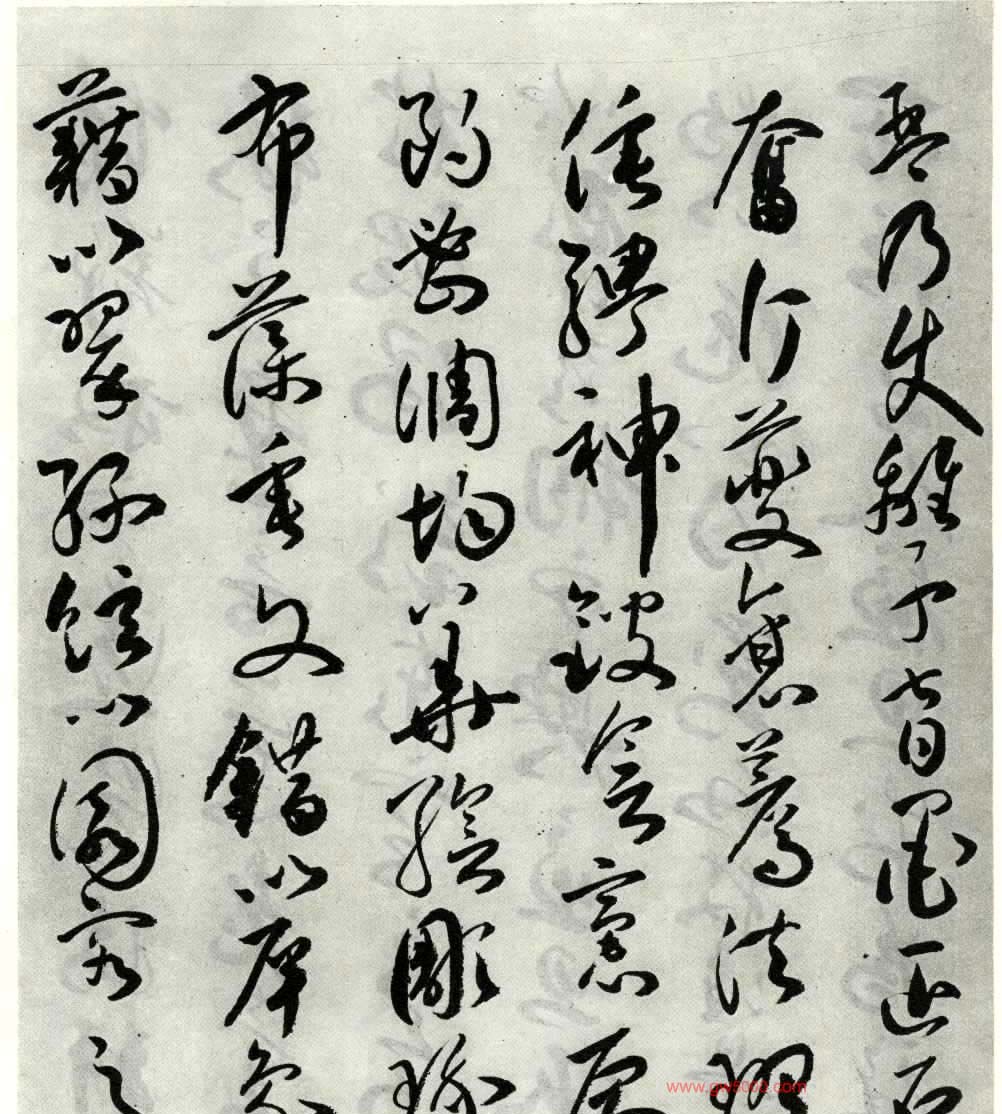 琴乃使離子督墨匠石
奮斤夔襄薦法班
倕騁神鎪會裛厠
朗密調均華繪彫琢
布藻垂文錯以犀象
藉以翠綠絃以園客之